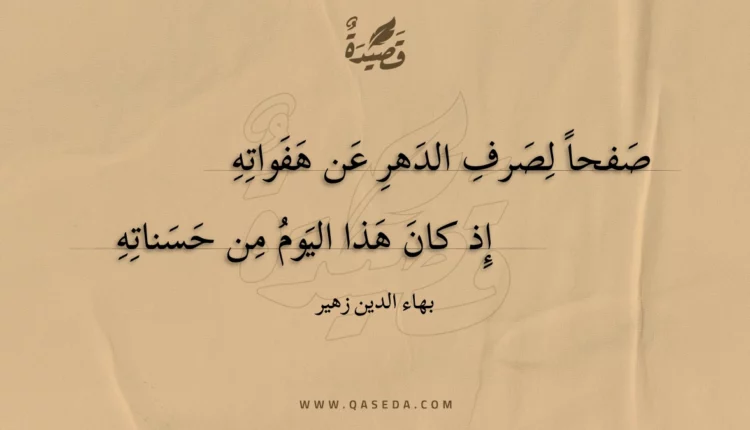 قَصِيْدَةٌ
صَفحاً لِصَرفِ الدَهرِ عَن هَفَواتِهِ
إِذ كانَ هَذا اليَومُ مِن حَسَناتِهِ
بهاء الدين زهير
WWW.QASEDA.COM